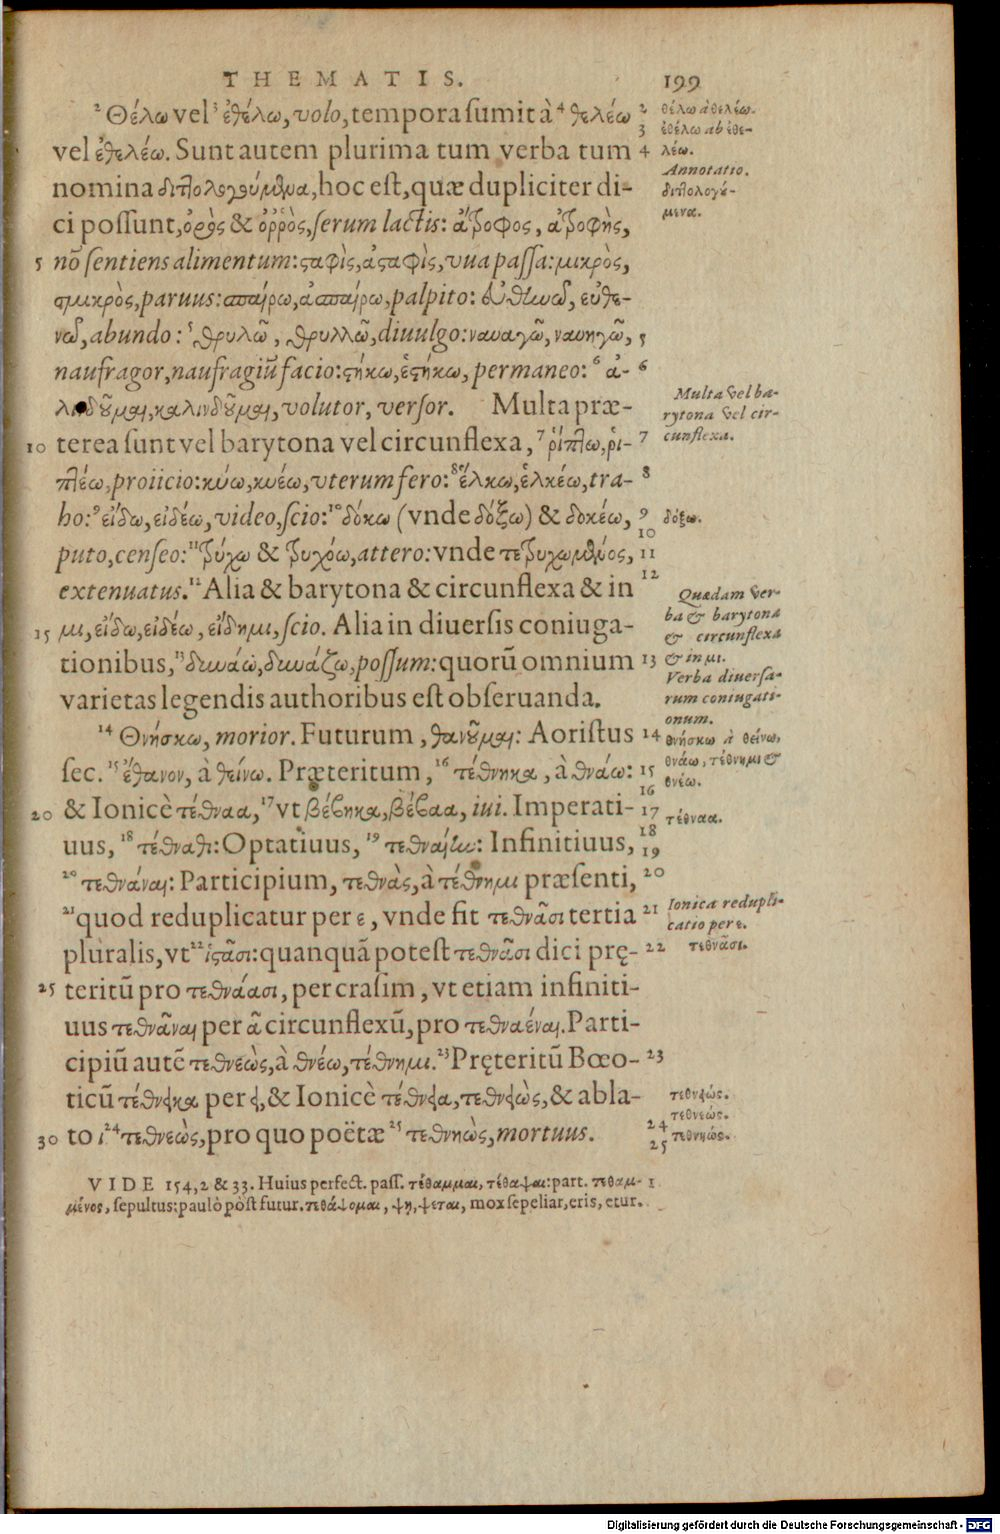 THEMATIS. 199
² Θέλω vel ³ ἐθέλω, volo, tempora sumit à ⁴ θελέω
vel ἐθελέω. Sunt autem plurima tum verba tum
nomina διπλολογούμενα, hoc est, quæ dupliciter di-
ci possunt, ὀρὸς & ὀῤῥὸς, serum lactis: ἄτροφος, ἀτροφὴς,
5 nō sentiens alimentum: σταφὶς, ἀσταφὶς, vua passa: μικρὸς,
σμικρὸς, paruus: σπαίρω, ἀσπαίρω, palpito: εὐθηνῶ, εὐθε-
νῶ, abundo: ⁵ θρυλῶ, θρυλλῶ, diuulgo: ναυαγῶ, ναυηγῶ,
naufragor, naufragiū facio: στήκω, ἑστήκω, permaneo: ⁶ ἀ-
λινδοῦμαι, καλινδοῦμαι, volutor, versor. Multa præ-
10 terea sunt vel barytona vel circunflexa, ⁷ ῥίπτω, ῥι-
πτέω, proiicio: κύω, κυέω, vterum fero: ⁸ ἕλκω, ἑλκέω, tra-
ho: ⁹ εἴδω, εἰδέω, video, scio: ¹⁰ δόκω (vnde δόξω) & δοκέω,
puto, censeo: ¹¹ τρύχω & τρυχόω, attero: vnde τετρυχωμένος,
extenuatus. ¹² Alia & barytona & circunflexa & in
15 μι, εἴδω, εἰδέω, εἴδημι, scio. Alia in diuersis coniuga-
tionibus, ¹³ δυνάω, δυνάζω, possum: quorū omnium
varietas legendis authoribus est obseruanda.
¹⁴ Θνήσκω, morior. Futurum, θανοῦμαι: Aoristus
sec. ¹⁵ ἔθανον, à θείνω. Præteritum, ¹⁶ τέθνηκα, à θνάω:
20 & Ionicè τέθναα, ¹⁷ vt βέβηκα, βέβαα, iui. Imperati-
uus, ¹⁸ τέθναθι: Optatiuus, ¹⁹ τεθναίην: Infinitiuus,
²⁰ τεθνάναι: Participium, τεθνὰς, à τέθνημι præsenti,
²¹ quod reduplicatur per ε, vnde fit τεθνᾶσι tertia
pluralis, vt ²² ἱστᾶσι: quanquā potest τεθνᾶσι dici prę-
25 teritū pro τεθνάασι, per crasim, vt etiam infiniti-
uus τεθνᾶναι per ᾶ circunflexū, pro τεθναέναι. Parti-
cipiū autē τεθνεὼς, à θνέω, τέθνημι. ²³ Pręteritū Bœo-
ticū τέθνεικα per ει, & Ionicè τέθνεια, τεθνειὼς, & abla-
30 to ι ²⁴ τεθνεὼς, pro quo poëtæ ²⁵ τεθνηὼς, mortuus.
VIDE 154,2 & 33. Huius perfect. pass. τέθαμμαι, τέθαψαι: part. τεθαμ- 1
μένος, sepultus: paulò pòst futur. τεθάψομαι, ψη, ψεται, mox sepeliar, eris, etur.
2 θέλω à θελέω.
3 ἐθέλω ab ἐθε-
4 λέω.
Annotatio.
διπλολογού-
μενα.
5
6
Multa vel ba-
rytona vel cir-
7 cunflexa.
8
9 δόξω.
10
11
12
Quædam ver-
ba & barytona
& circunflexa
13 & in μι.
Verba diuersa-
rum coniugati-
onum.
14 θνήσκω à θείνω,
15 θνάω, τέθνημι &
θνέω.
16
17 τέθναα.
18
19
20
21 Ionica redupli-
catio per ε.
22 τεθνᾶσι.
23
τεθνειώς.
τεθνεώς.
24
25 τεθνηώς.
Digitalisierung gefördert durch die Deutsche Forschungsgemeinschaft - DFG